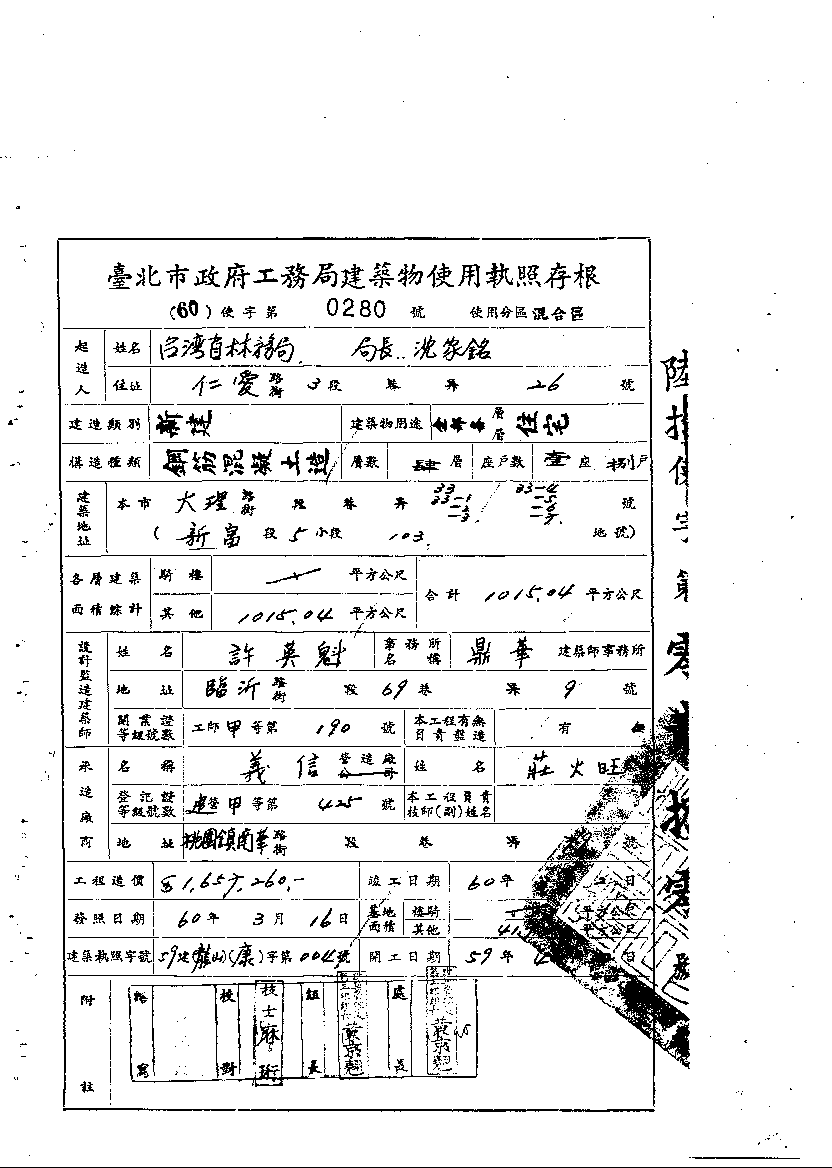 臺北市政府工務局建築物使用執照存根
(60)使字第 0280 號 使用分區 混合區
起造人 姓名 台湾省林務局 局長 沈家銘
住址 仁愛 路街 3段 巷 弄 26 號
建造類別 新建 建築物用途 層層 住宅
構造種類 鋼筋混凝土造 層數 肆層 座戶數 壹座 捌戶
建築地址 本市 大理 路街 段 巷 弄 33 33-1 33-4 號
(新富 段 5 小段 103 地號)
各層建築面積綜計 騎樓 平方公尺 合計 1015.04 平方公尺
其他 1015.04 平方公尺
設計監造建築師 姓名 許英魁 業務所名稱 鼎華 建築師事務所
地址 臨沂 路街 段 69 巷 弄 9 號
開業證等級號數 工師甲等第 190 號 本工程有無負責監造 有
承造廠商 名稱 義信 營造廠公司 姓名 莊火旺
登記證等級號數 建營甲等第 425 號 本工程負責技師(副)姓名
地址 桃園鎮南華 路街 段 巷 弄 號
工程造價 竣工日期 60年 日
發照日期 60年 3月 16日 基地面積 騎樓 平方公尺
其他 平方公尺
建築執照字號 59建(龍山)(康)字第004號 開工日期 59年
附註 繕寫 校對 技士 組長 處長
陸拾使字第零貳捌零號